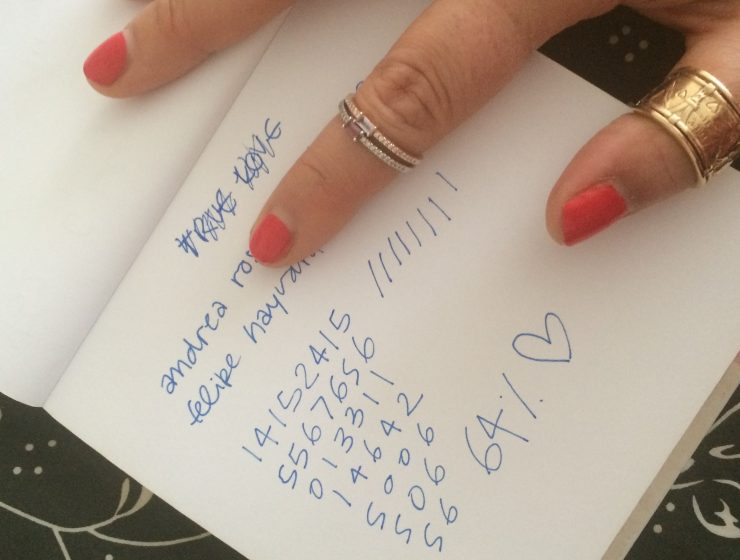 TRUE LOVE
andrea
felipe
14152415
5567656
013311
14642
5006
506
56
64%